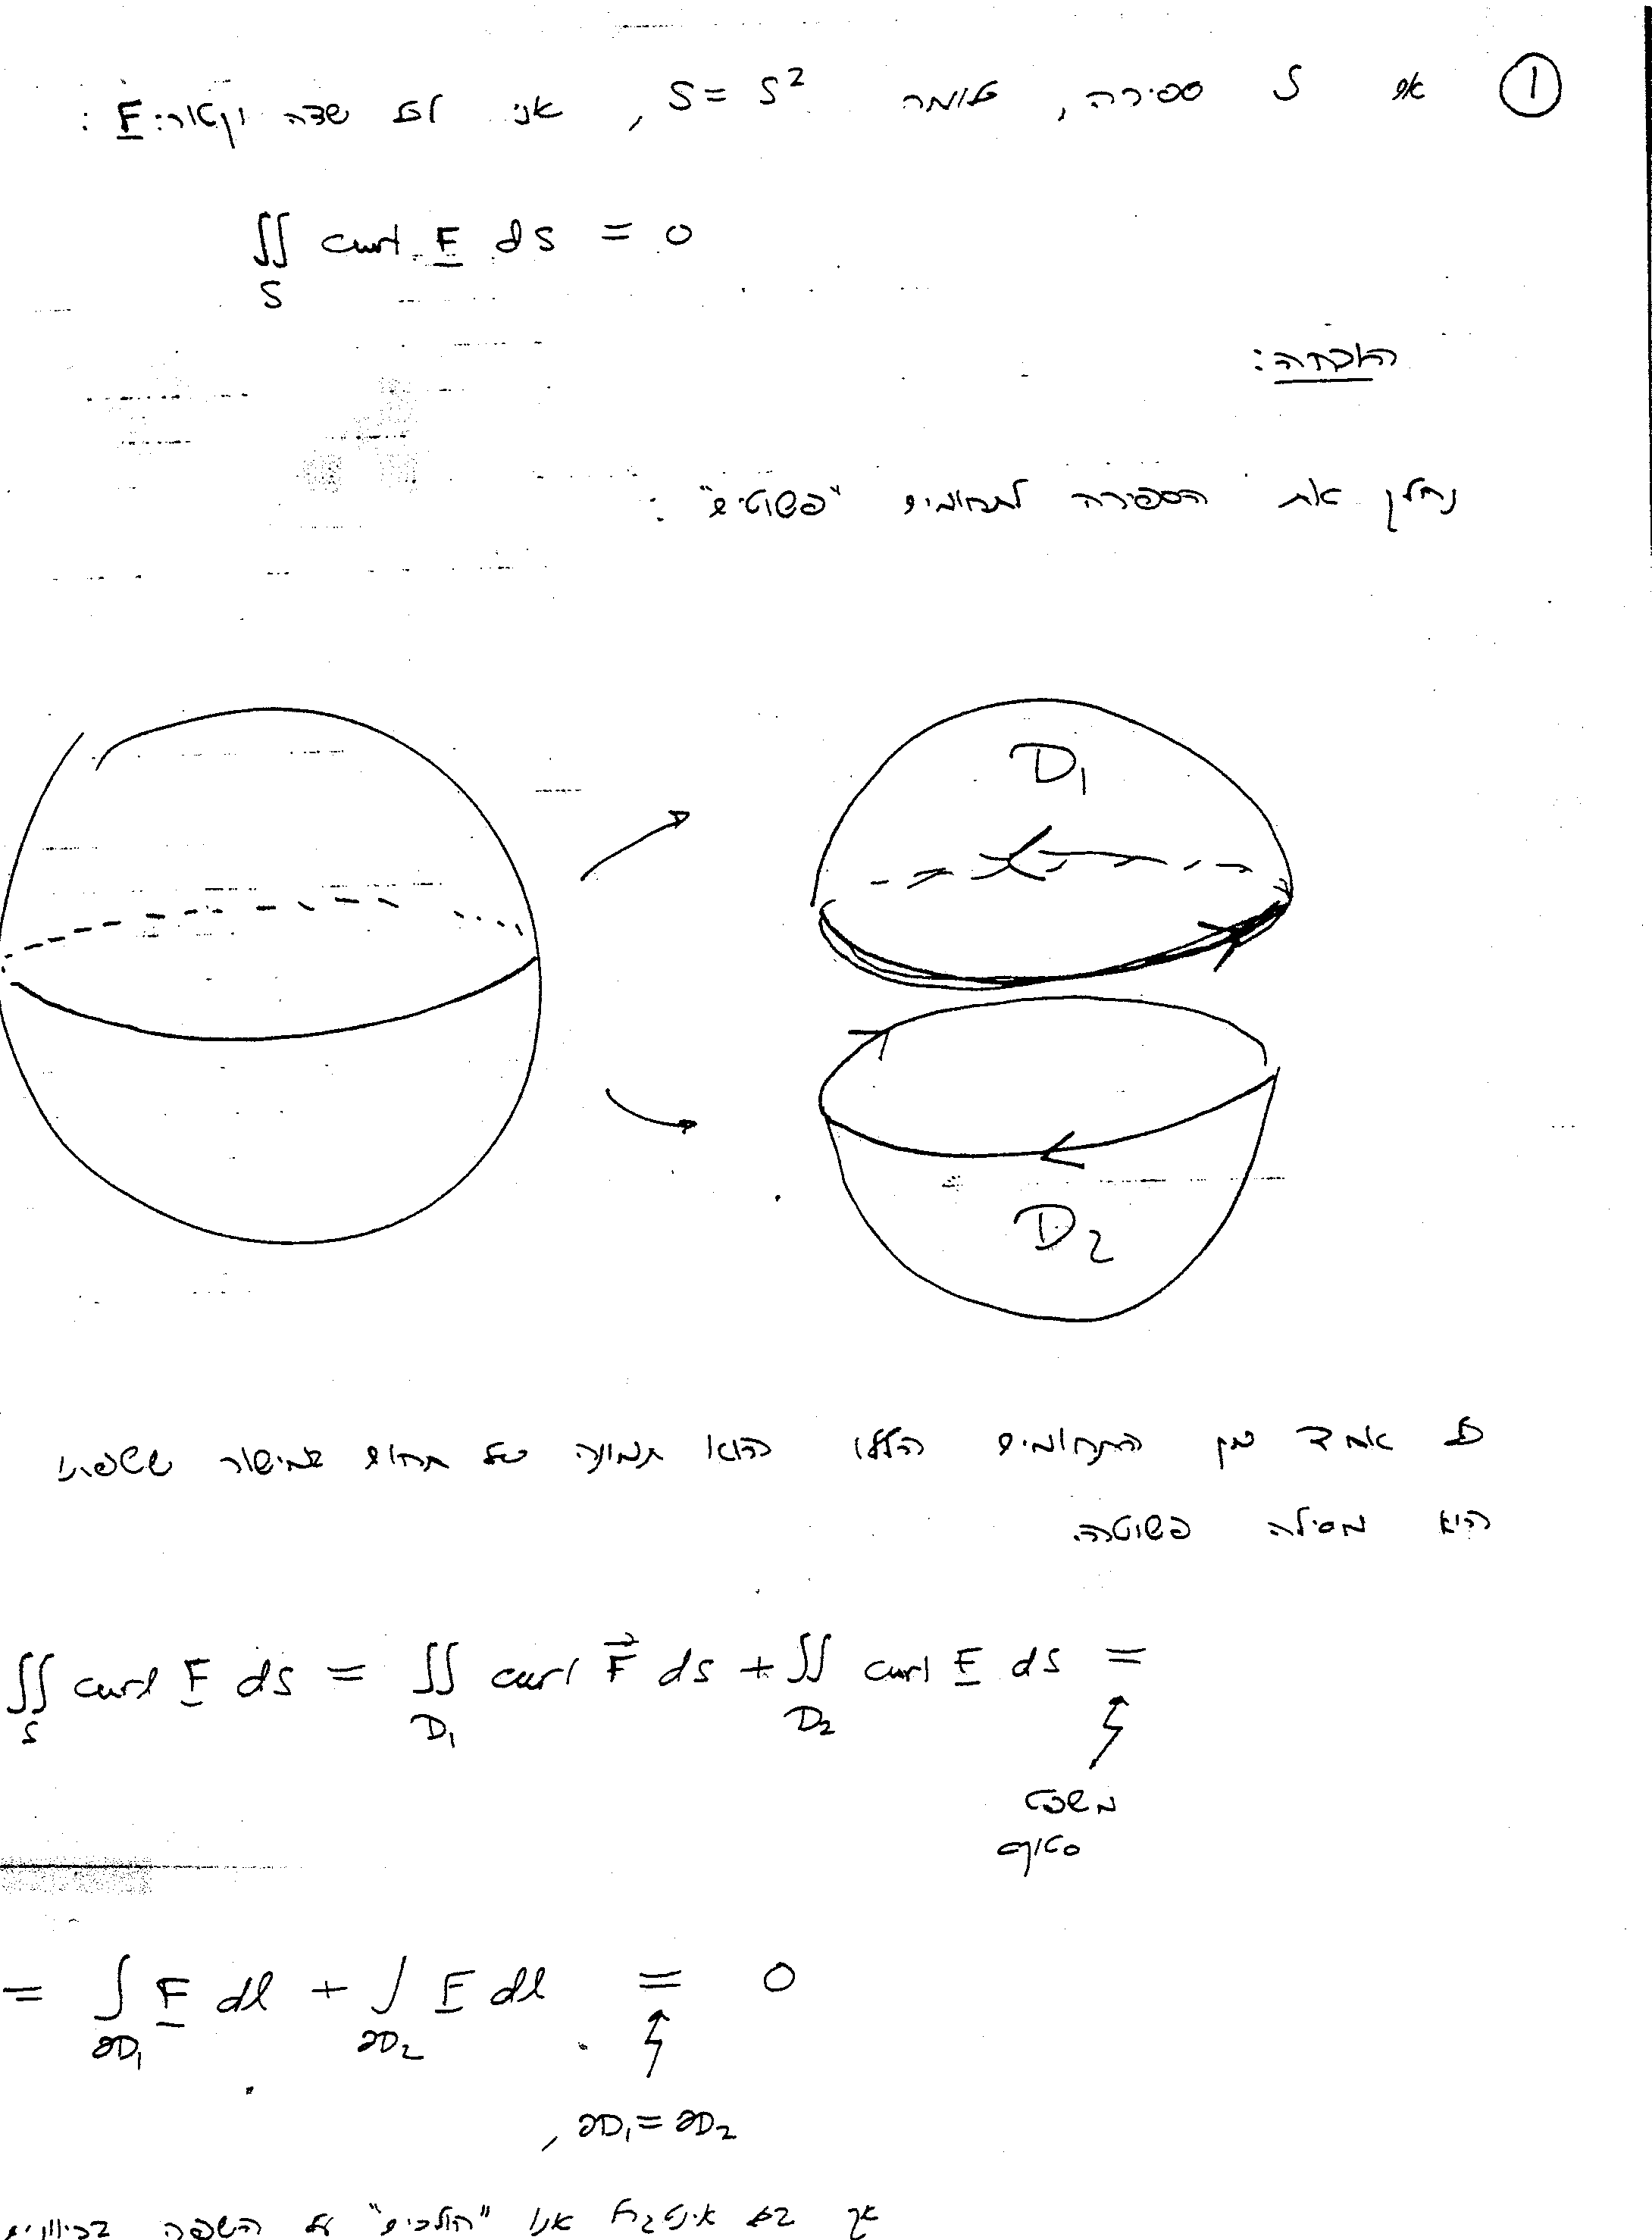 ① אם S ספירה, כלומר S = S², אזי לכל שדה וקטורי F :
∬_S curl F dS = 0
הוכחה:
נחלק את הספירה לתחומים "פשוטים" :
D₁
D₂
כל אחד מן התחומים הללו הוא תמונה של תחום במישור ששפתו
היא מסילה פשוטה.
∬_S curl F dS = ∬_D₁ curl F⃗ dS + ∬_D₂ curl F dS =
משפט
סטוקס
= ∫_∂D₁ F dl + ∫_∂D₂ F dl = 0
, ∂D₁ = ∂D₂
אך בכל אינטגרל אנו "הולכים" על השפה בכיוונים